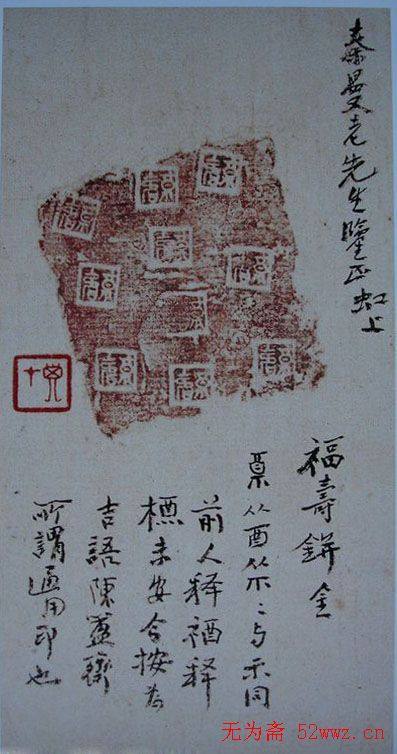 老先生鑒正虹上
福壽鉼金
从酉从不〻与示同
前人释禉释
標未安今按为
吉語陳簠齋
所謂通用印也
无为斋 52wwz.cn